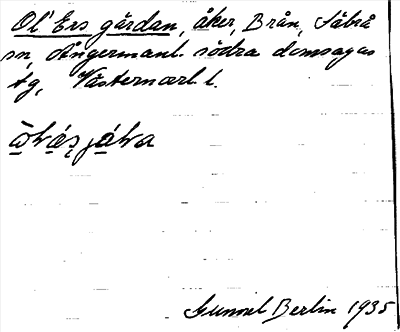 Ol' Ers gårdan, åker, Brån, Säbrå
sn, Ångermanl. södra domsagas
tg, Västernorrl. l.
Gunnel Berlin 1935